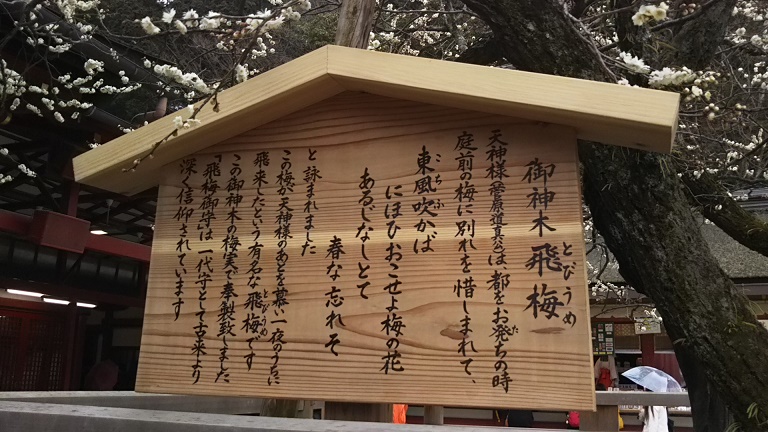 御神木 飛梅
とびうめ
天神様(菅原道真公)は、都をお発ちの時
た
庭前の梅に別れを惜しまれて、
東風吹かば
こちふ
にほひおこせよ梅の花
あるじなしとて
春な忘れそ
と詠まれました
この梅が天神様のあとを慕い一夜のうちに
飛来したという有名な飛梅です
とびうめ
この御神木の梅実で奉製致しました
「飛梅御守」は一代守として古来より
深く信仰されています